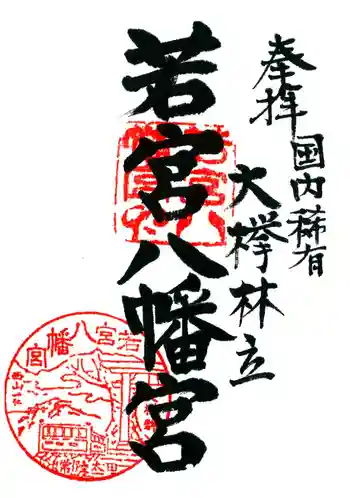 奉拝
国内稀有
大欅林立
若宮八幡宮
若宮八幡宮
常陸太田